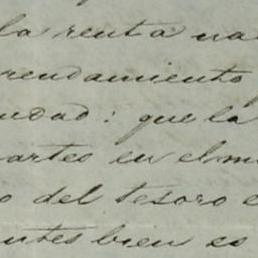 la renta na
rendamiento
udad: que la
artes en el m
o del tesoro e
ntes bien es